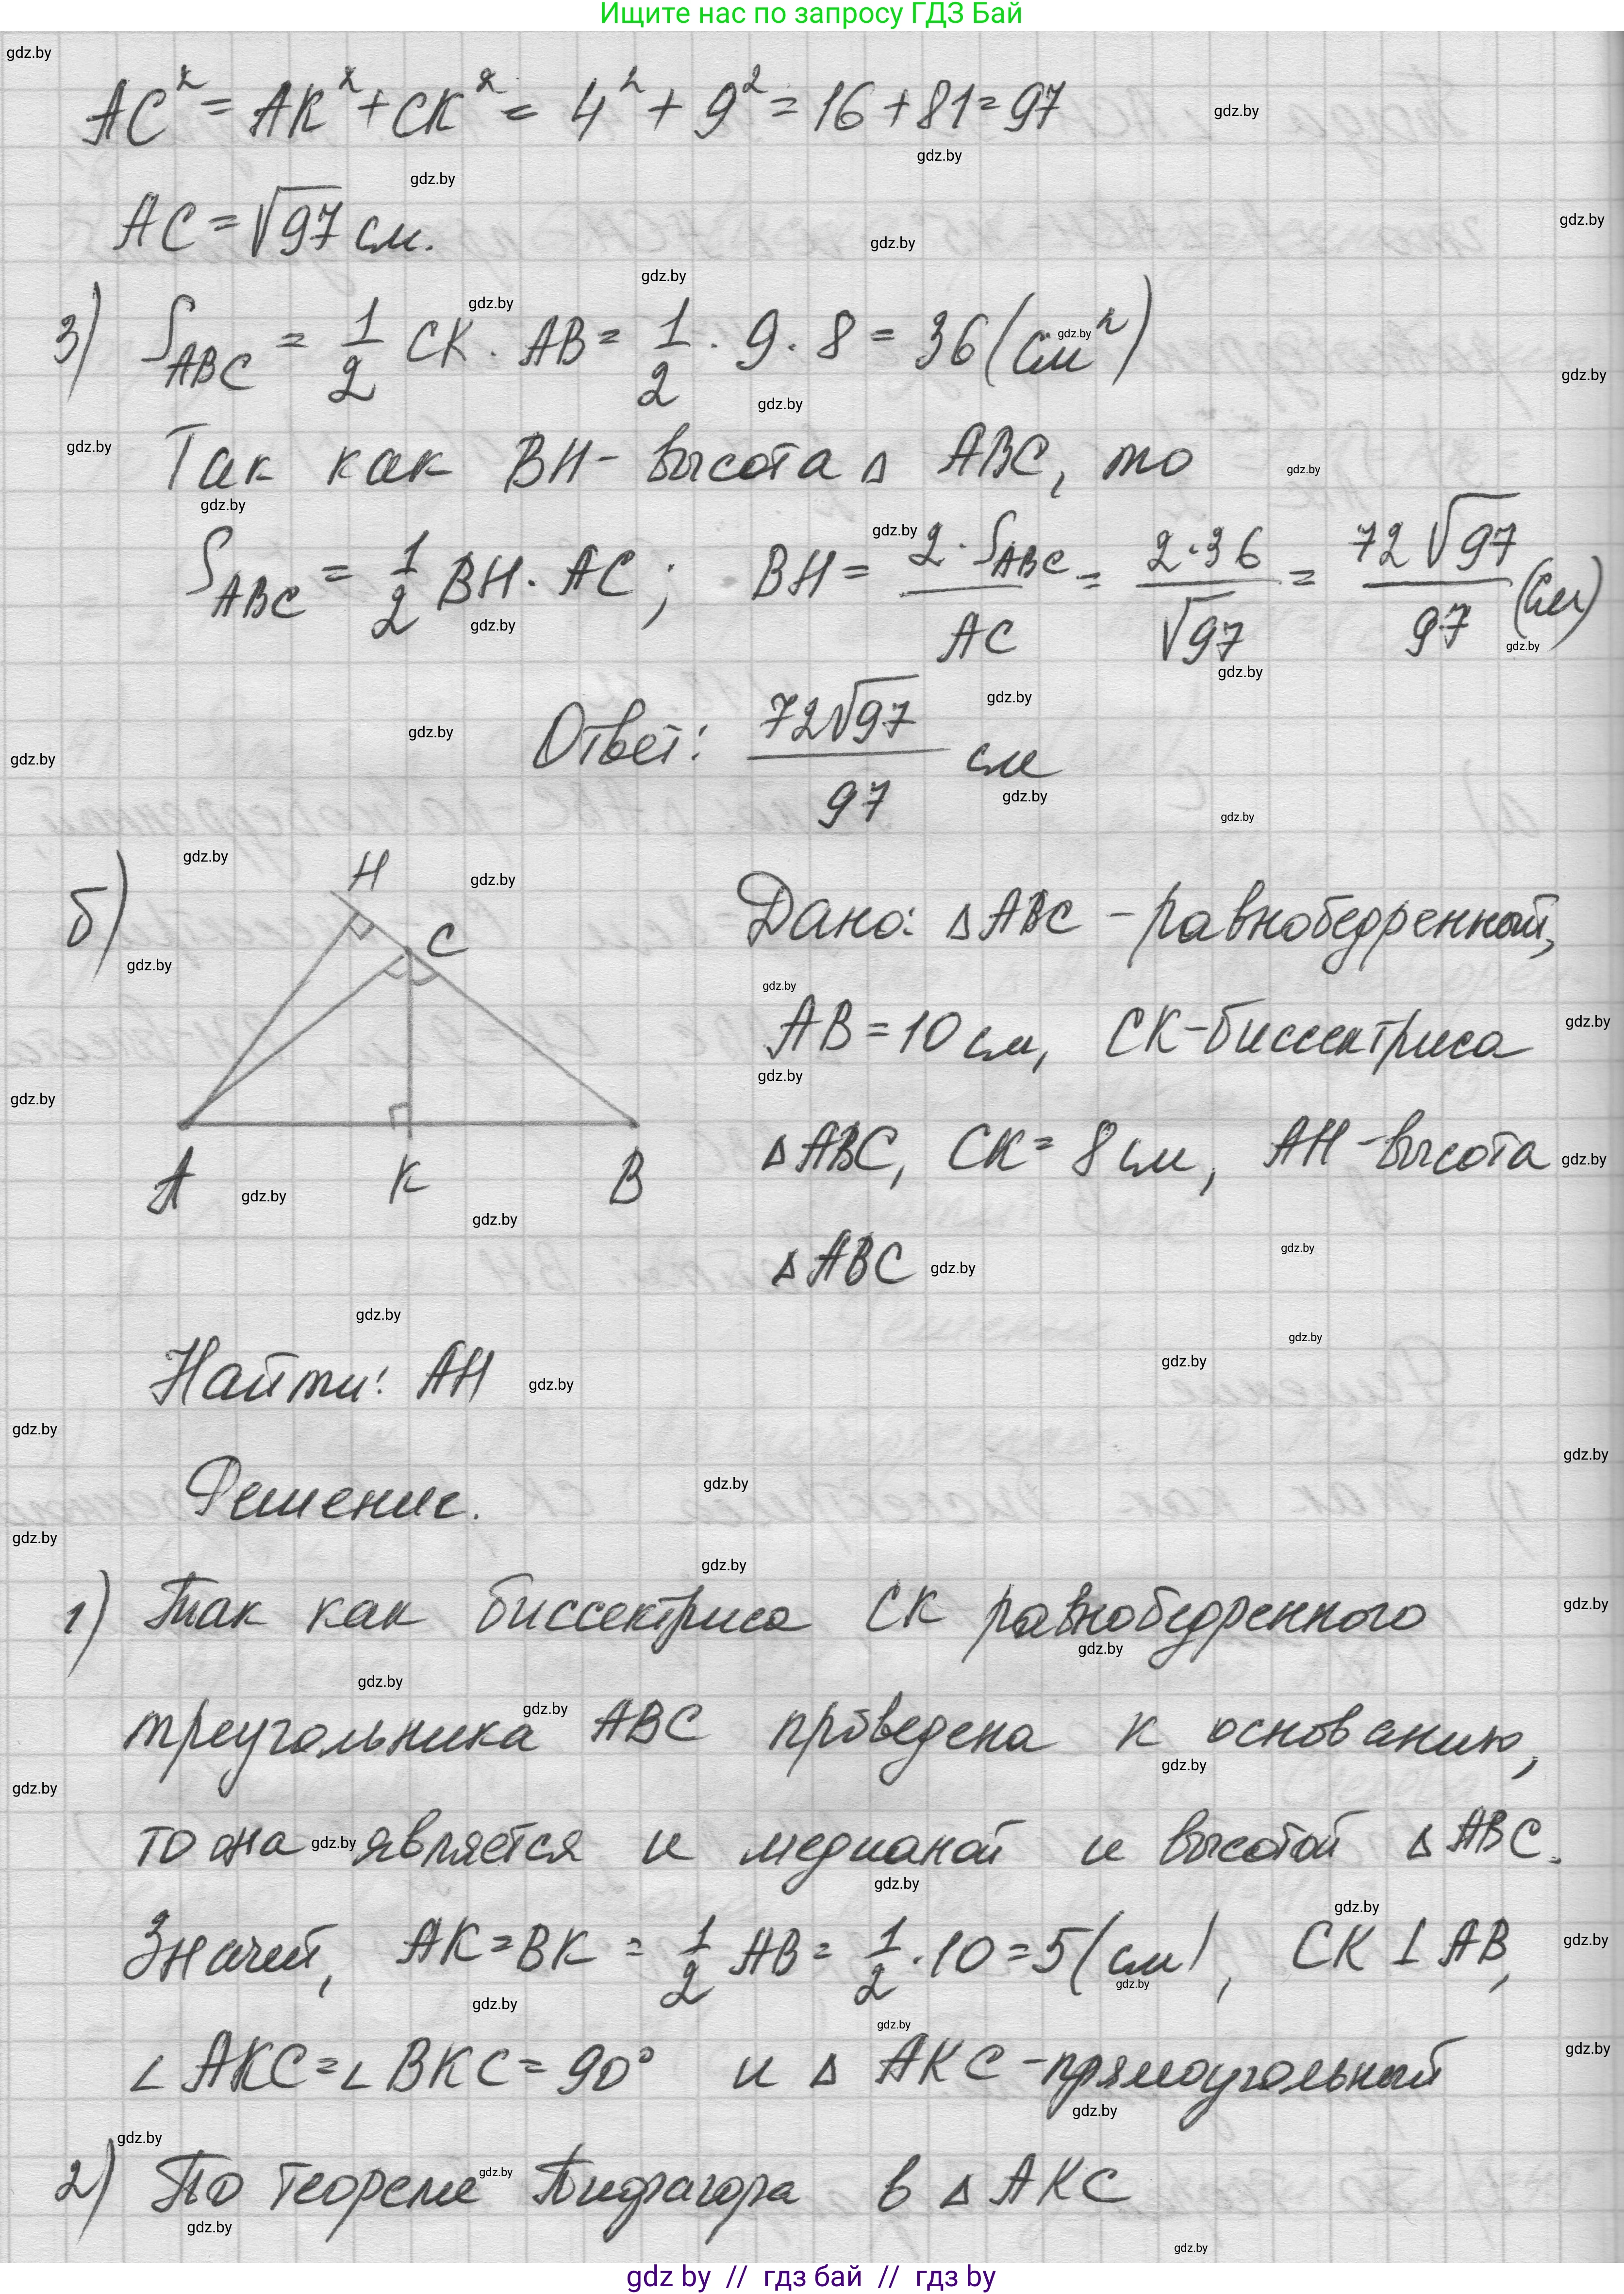 Ищите нас по запросу ГДЗ Бай
AC² = AK² + CK² = 4² + 9² = 16 + 81 = 97
AC = √97 см.
3) S_ABC = 1/2 CK · AB = 1/2 · 9 · 8 = 36 (см²)
Так как BH - высота △ ABC, то
S_ABC = 1/2 BH · AC; BH = 2·S_ABC/AC = 2·36/√97 = 72√97/97 (см)
Ответ: 72√97/97 см
б)
H
C
A K B
Дано: △ABC - равнобедренный,
AB = 10 см, CK - биссектриса
△ABC, CK = 8 см, AH - высота
△ABC
Найти: AH
Решение.
1) Так как биссектриса CK равнобедренного
треугольника ABC проведена к основанию,
то она является и медианой и высотой △ABC.
Значит, AK = BK = 1/2 AB = 1/2 · 10 = 5 (см), CK ⊥ AB,
∠AKC = ∠BKC = 90° и △ AKC - прямоугольный
2) По теореме Пифагора в △AKC
gdz by // гдз бай // гдз by
gdz.by